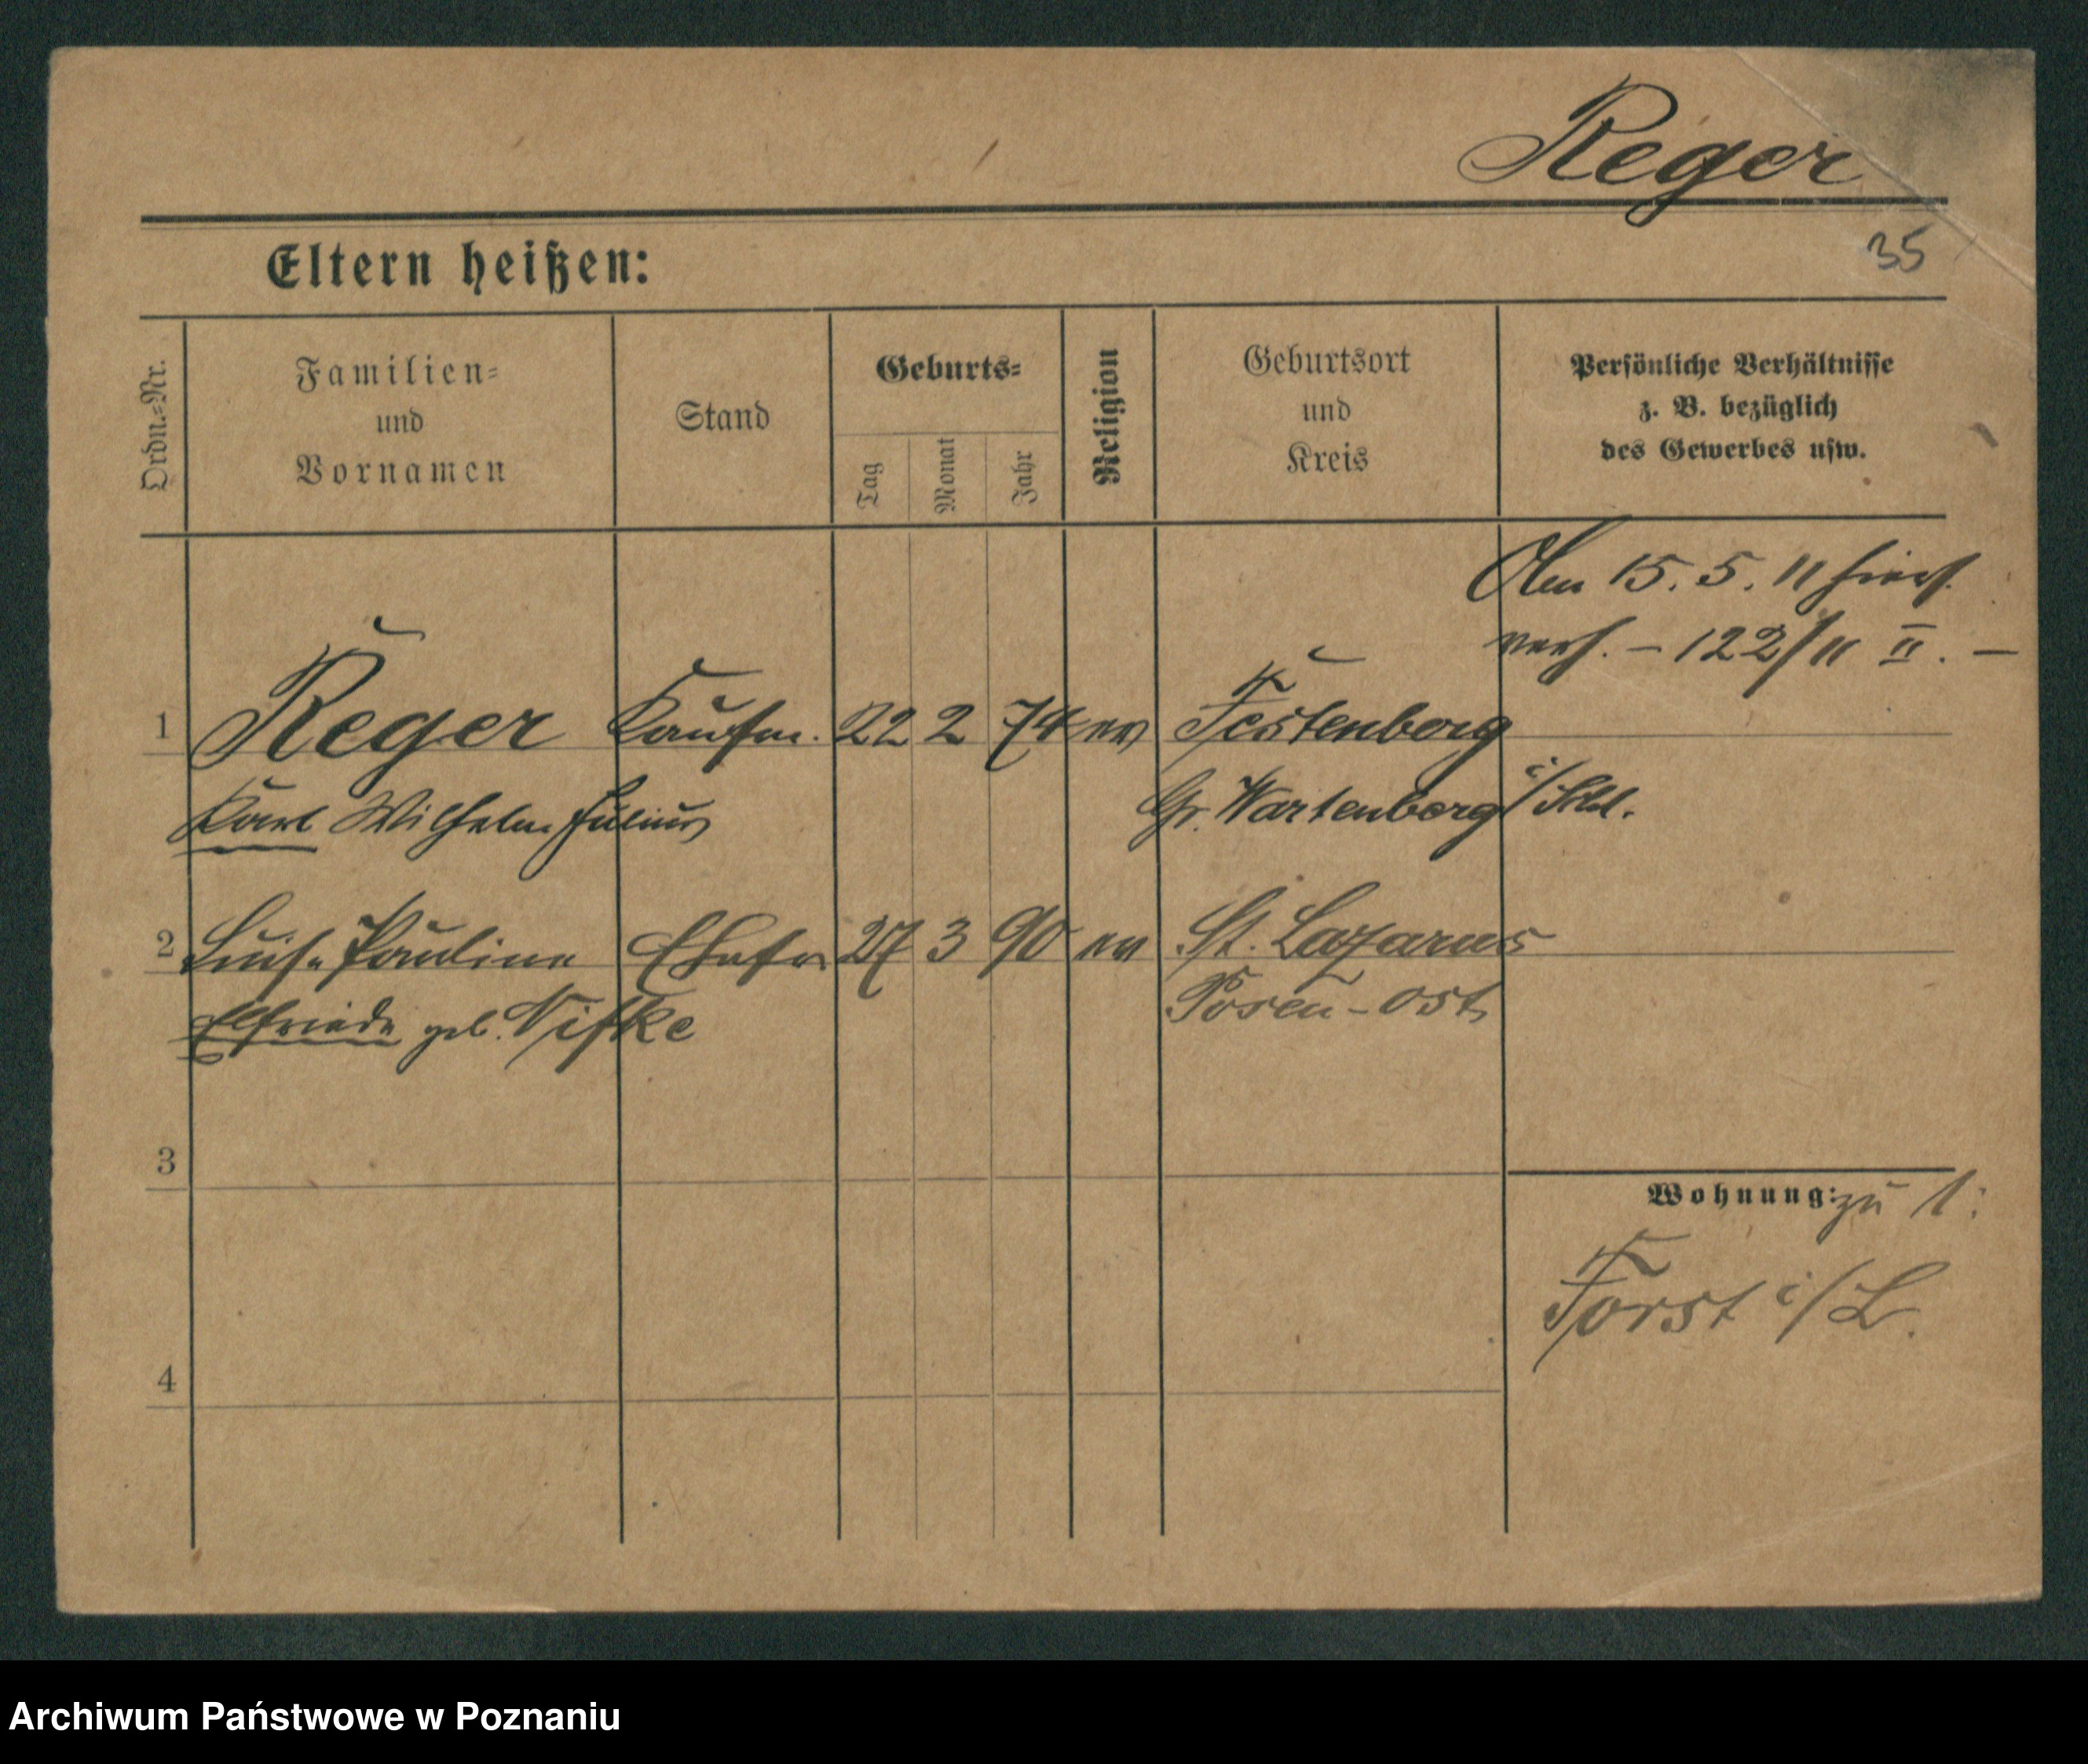 Reger
35
Eltern heißen:
Ordn.-Nr.
Familien-
und
Vornamen
Stand
Geburts-
Tag
Monat
Jahr
Religion
Geburtsort
und
Kreis
Persönliche Verhältnisse
z. B. bezüglich
des Gewerbes usw.
Am 15. 5. 11 hier
verh. - 122/11 II. -
1 Reger Kaufm. 22 2 74 ev Festenberg
Karl Wilhelm Julius Gr. Wartenberg i/Schl.
2 Luise Pauline Ehefr 27 3 90 ev St. Lazarus
Elfriede geb. Nifke Posen-Ost
3
Wohnung: zu 1:
Forst i/L.
4
Archiwum Państwowe w Poznaniu